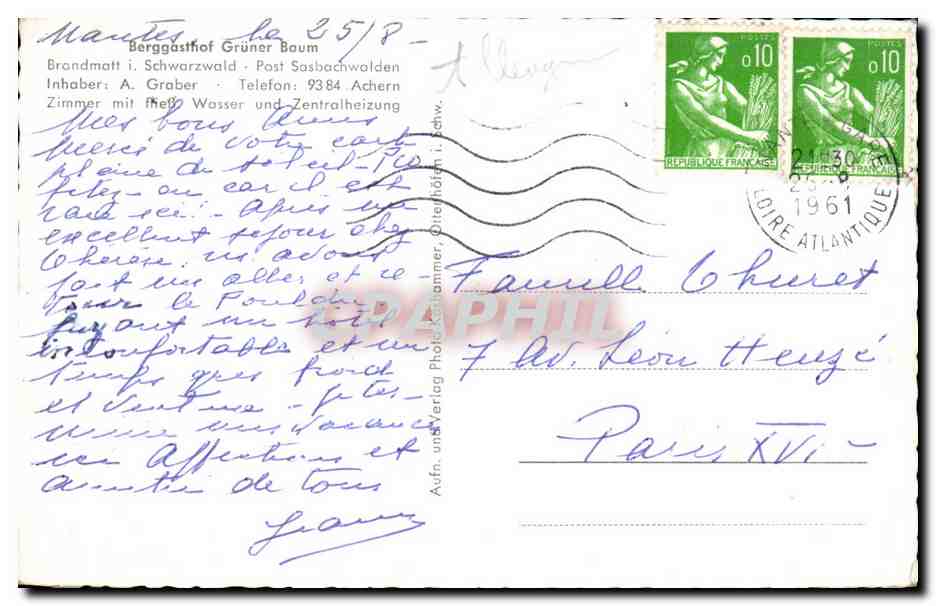 Nantes, le 25/8 -
Berggasthof Grüner Baum
Brandmatt i. Schwarzwald · Post Sasbachwalden
Inhaber: A. Graber · Telefon: 9384 Achern
Zimmer mit fließ. Wasser und Zentralheizung
Mes bons Amis
Merci de votre carte
pleine de soleil - Pro
fitez-en car il est
rare ici! - Après un
excellent séjour chez
Thérèse, ns avons
fait un aller et re-
tour le Pouldu
fuyant un hôtel
inconfortable et un
temps gris froid
et venteux -
vacances
ici Affections et
amitiés de tous
Allemagne
Aufn. und Verlag Photo Kathammer, Ottenhöfen i. Schw.
POSTES
0,10
REPUBLIQUE FRANÇAISE
POSTES
0,10
REPUBLIQUE FRANÇAISE
NANTES GARE
21H30
25-8
1961
LOIRE ATLANTIQUE
Famille Thuret
7 Av. Léon Heuzé
Paris XVI
CPAPHIL